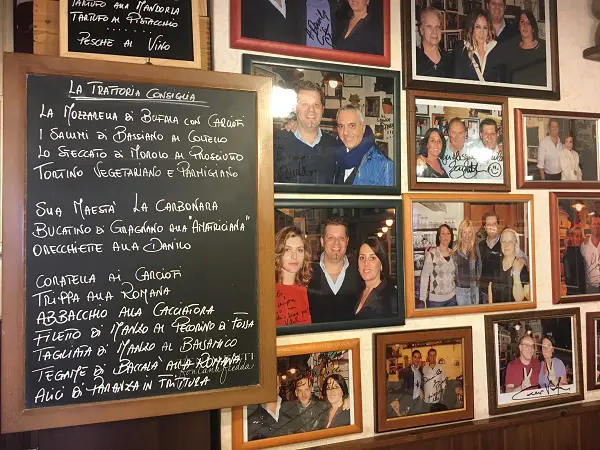 TARTUFO ALLA MANDORLA
TARTUFO AL PISTACCHIO
PESCHE AL VINO
LA TRATTORIA CONSIGLIA
LA MOZZARELLA DI BUFALA CON CARCIOFI
I SALUMI DI BASSIANO AL COLTELLO
LO STECCATO DI MOROLO AL PROSCIUTTO
TORTINO VEGETARIANO E PARMIGIANO
SUA MAESTÀ LA CARBONARA
BUCATINO DI GRAGNANO ALLA "AMATRICIANA"
ORECCHIETTE ALLA DANILO
CORATELLA AI CARCIOFI
TRIPPA ALLA ROMANA
ABBACCHIO ALLA CACCIATORA
FILETTO DI MANZO AL PECORINO DI FOSSA
TAGLIATA DI MANZO AL BALSAMICO
TEGAME DI BACCALÀ ALLA ROMANA
ALICI DI PARANZA IN FRITTURA